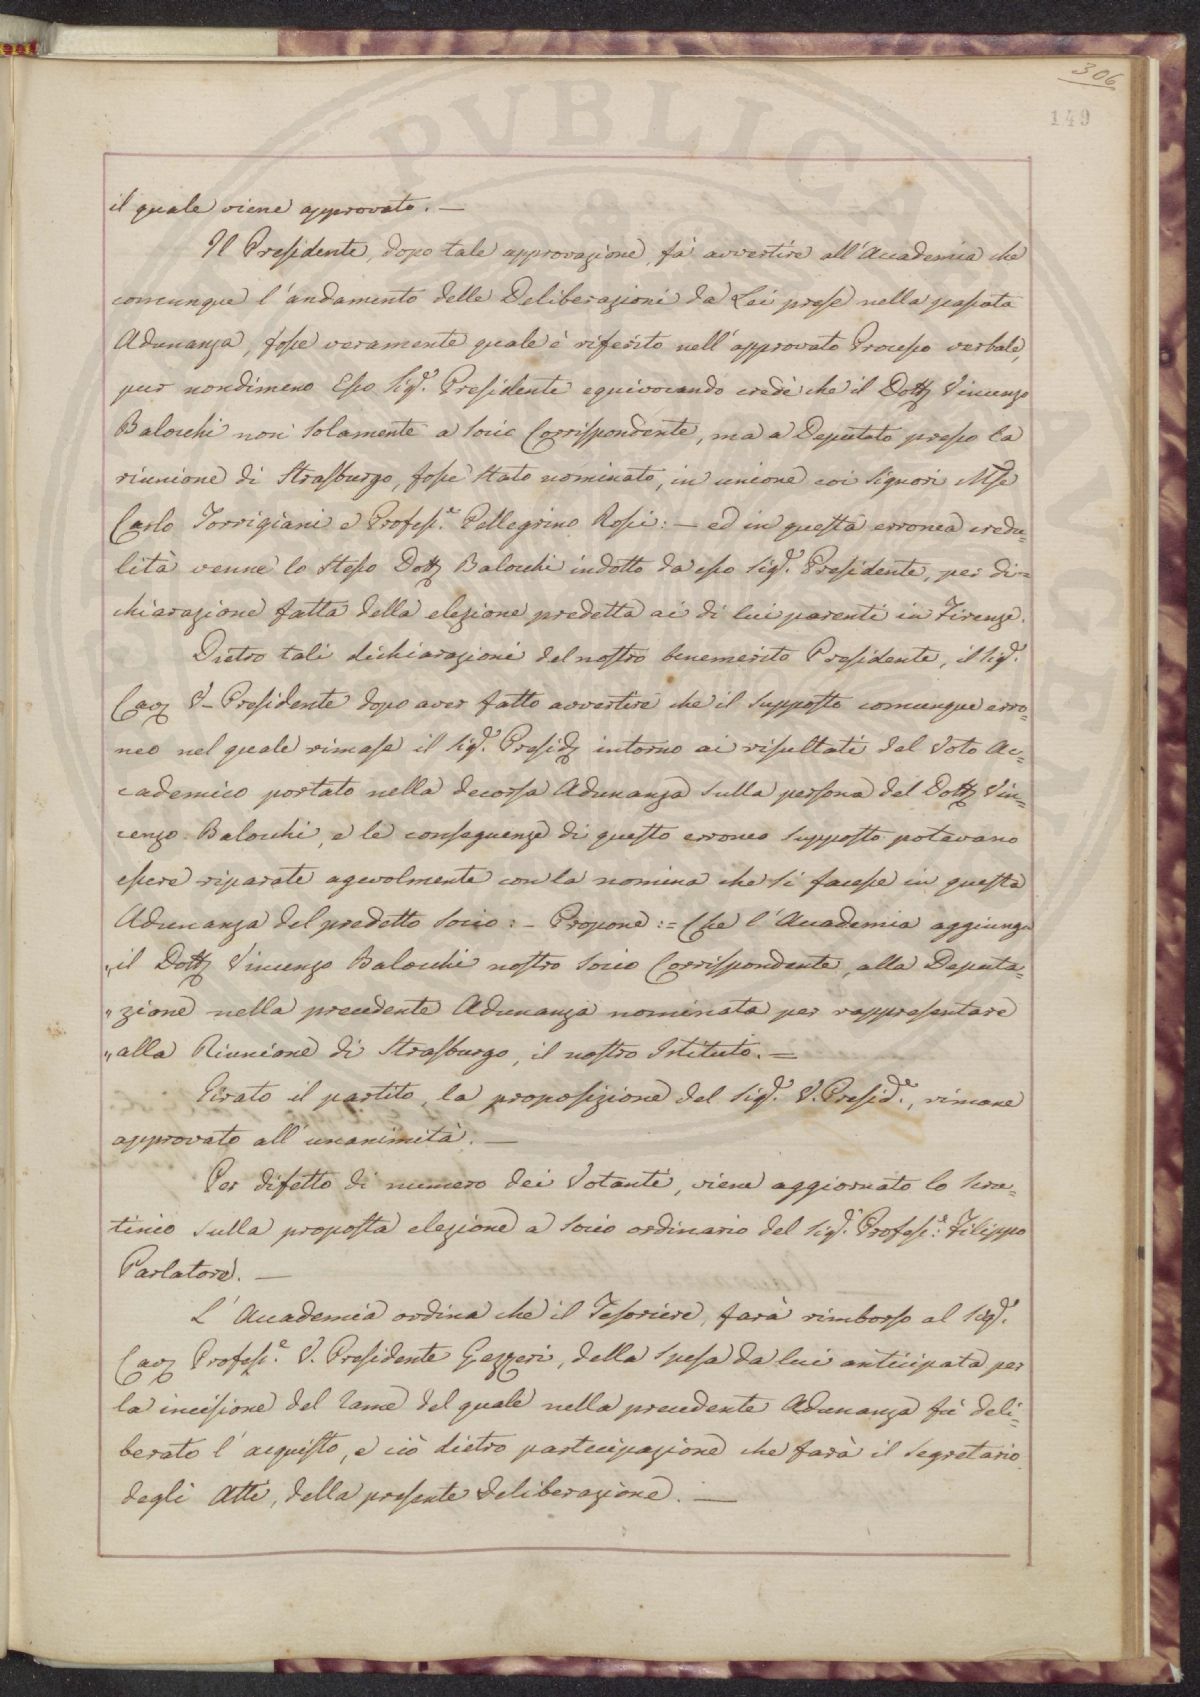 306
149
il quale viene approvato. —
Il Presidente, dopo tale approvazione, fà avvertire all'Accademia che
comunque l'andamento delle Deliberazioni da Lei prese nella passata
Adunanza, fosse veramente quale è riferito nell'approvato Processo verbale,
pur nondimeno Esso Sig.r Presidente equivocando credè che il Dott. Vincenzo
Balocchi non solamente a Socio Corrispondente, ma a Deputato presso la
riunione di Strasburgo, fosse stato nominato, in unione coi Signori Mse
Carlo Torrigiani e Profess.e Pellegrino Rossi: — ed in questa erronea credu=
lità venne lo stesso Dott. Balocchi indotto da esso Sig.r Presidente, per di=
chiarazione fatta della elezione predetta ai di lui parenti in Firenze.
Dietro tali dichiarazioni del nostro benemerito Presidente, il Sig.r
Cav. V. Presidente dopo aver fatto avvertire che il supposto comunque erro=
neo nel quale rimase il Sig.r Presid. intorno ai risultati del Voto Ac=
cademico portato nella decorsa Adunanza sulla persona del Dott. Vin=
cenzo Balocchi, e le conseguenze di questo erroneo supposto potavano
essere riparate agevolmente con la nomina che si facesse in questa
Adunanza del predetto Socio: — Propone: = Che l'Accademia aggiunga
„il Dott. Vincenzo Balocchi nostro Socio Corrispondente, alla Deputa=
„zione nella precedente Adunanza nominata per rappresentare
„alla Riunione di Strasburgo, il nostro Istituto. =
Girato il partito, la proposizione del Sig.r V. Presid.e, rimane
approvato all'unanimità. —
Per difetto di numero dei Votanti, viene aggiornato lo Scru=
tinio sulla proposta elezione a Socio ordinario del Sig.r Profess.e Filippo
Parlatore. —
L'Accademia ordina che il Tesoriere, farà rimborso al Sig.r
Cav. Profess.e V. Presidente Gazzeri, della Spesa da lui anticipata per
la incisione del rame del quale nella precedente Adunanza fù deli=
berato l'acquisto, e ciò dietro partecipazione che farà il Segretario
degli Atti, della presente deliberazione. —
PVBLICA